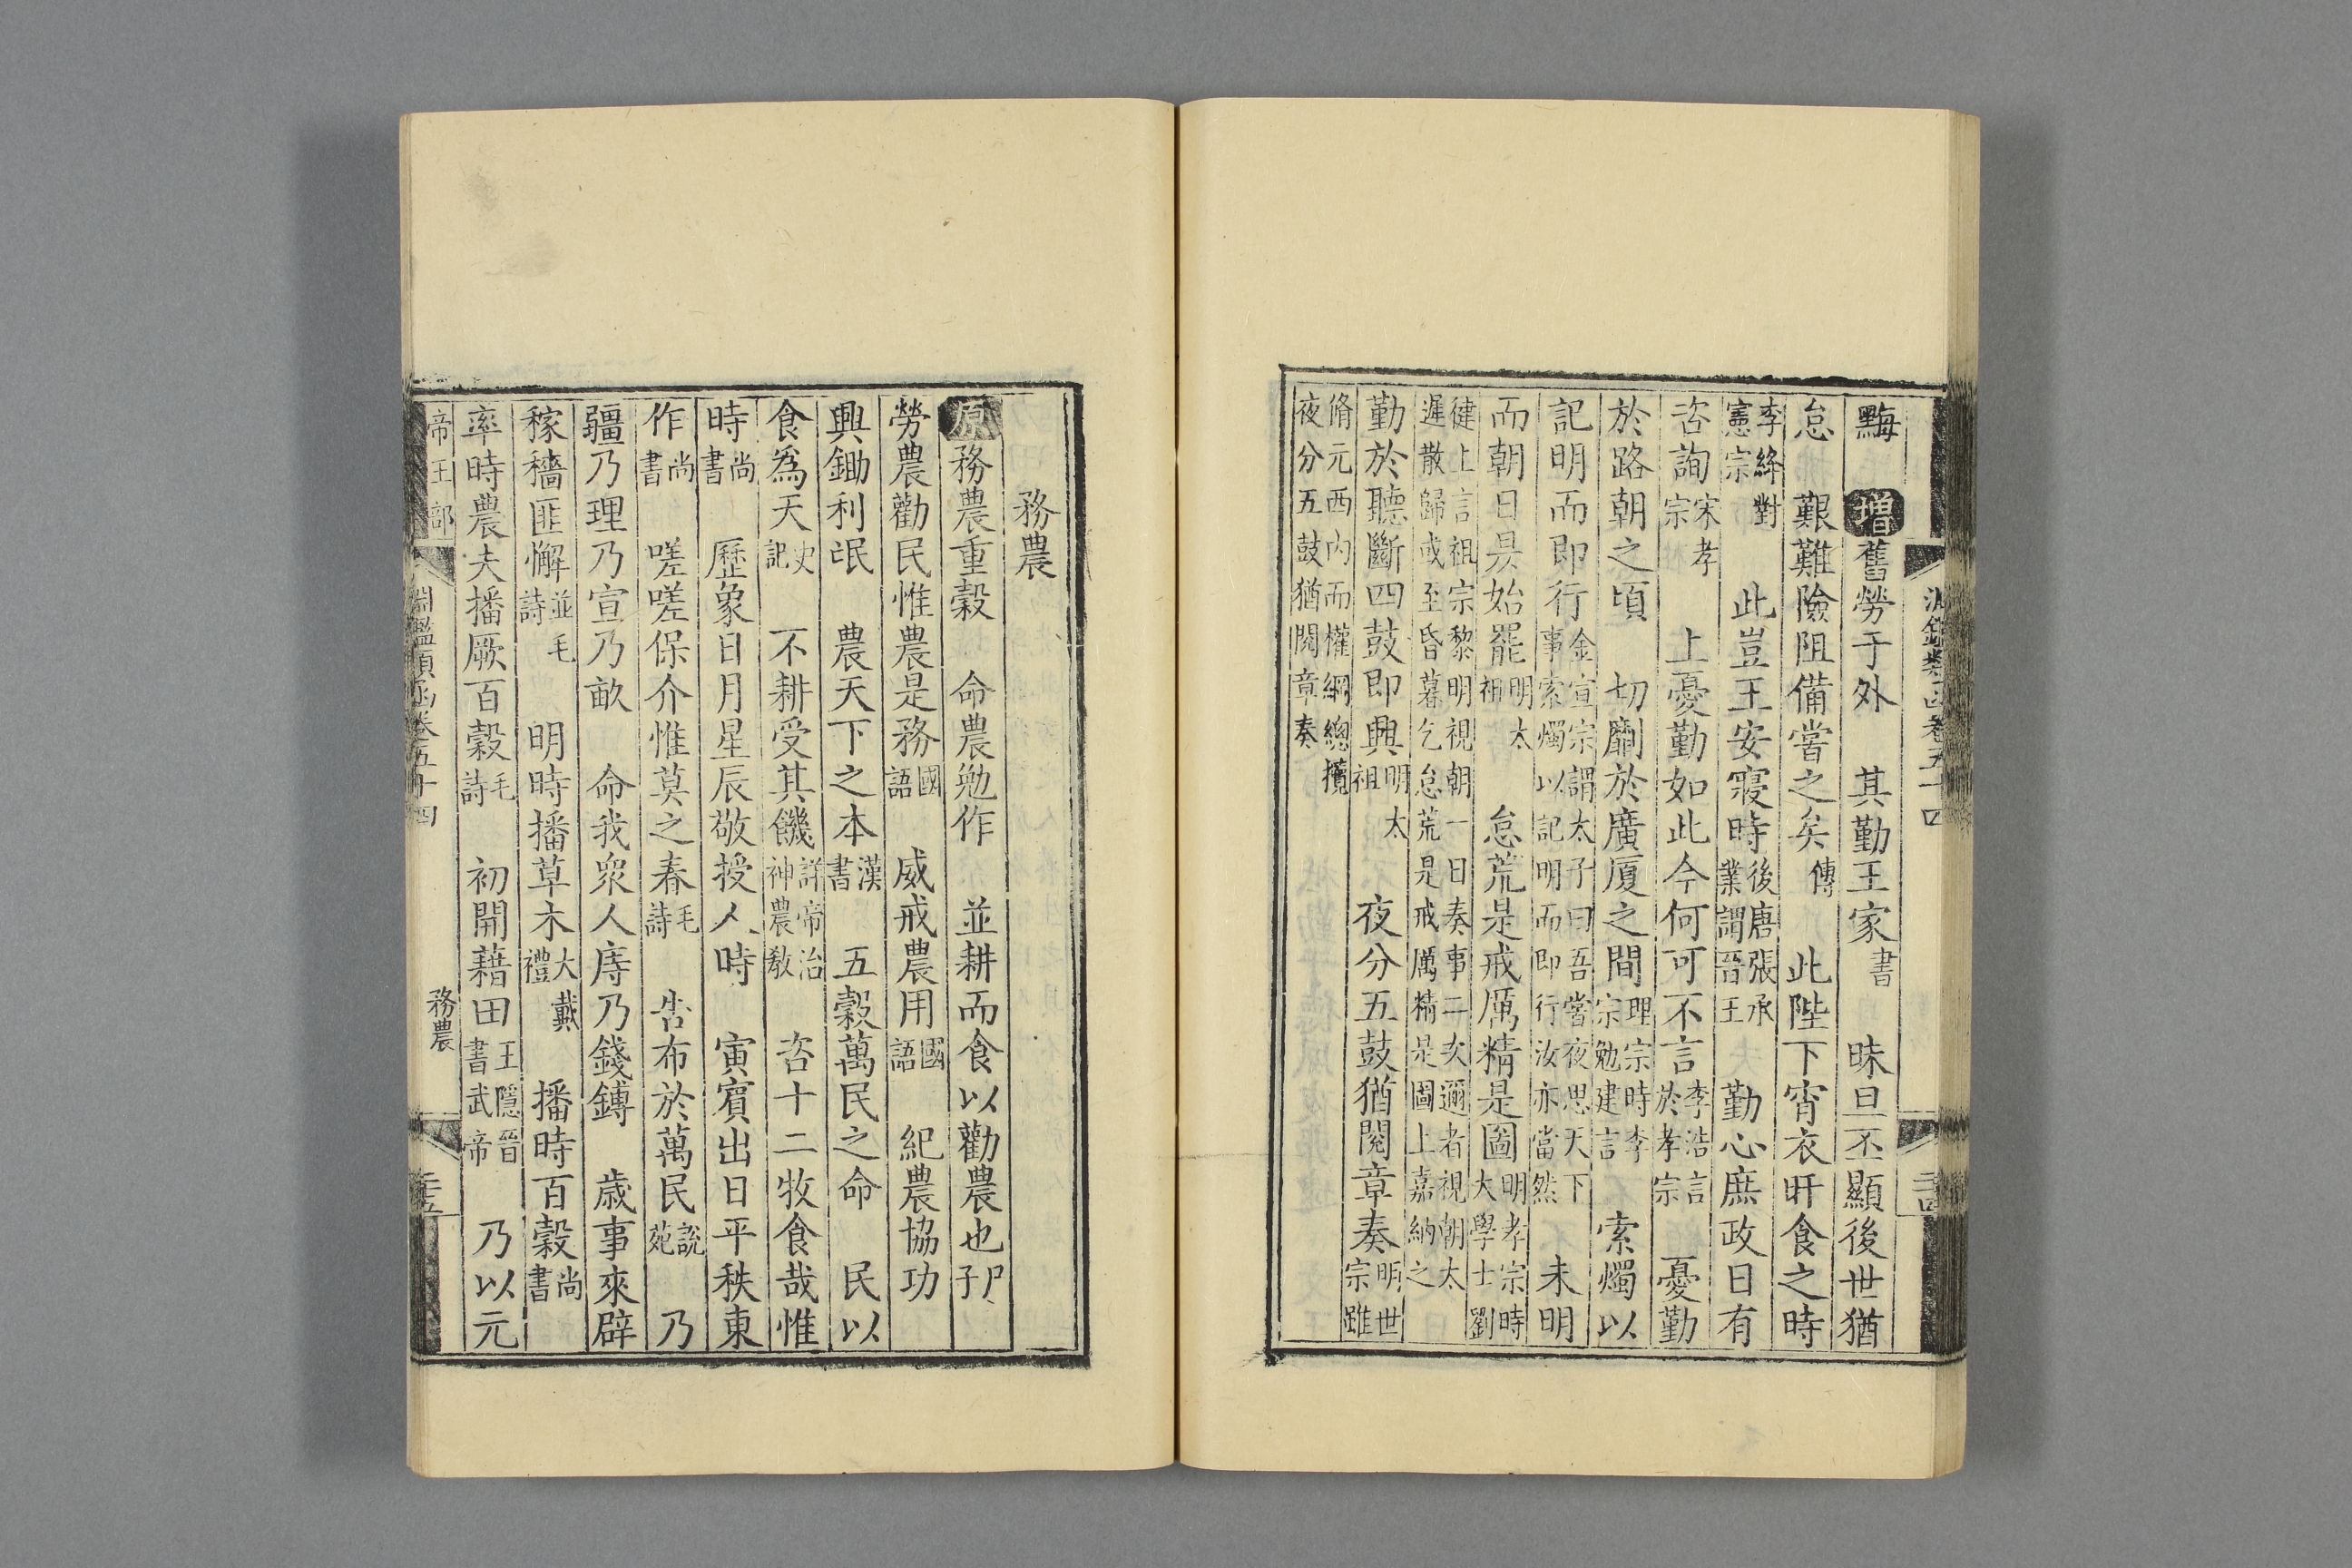 淵鑑類函卷五十四
黣 增舊勞于外 其勤王家書 昧旦丕顯後世猶
怠 艱難險阻備嘗之矣傳 此陛下宵衣旰食之時
李絳對憲宗 此豈王安寢時後唐張承業謂晉王 勤心庶政日有
咨詢宋孝宗 上憂勤如此今何可不言李浩言於孝宗 憂勤
於路朝之頃 切劘於廣廈之間理宗時李宗勉建言 索燭以
記明而即行金宣宗謂太子曰吾嘗夜思天下事索燭以記明而即行汝亦當然 未明
而朝日昃始罷明太祖 怠荒是戒厲精是圖明孝宗時大學士劉
健上言祖宗黎明視朝一日奏事二次邇者視朝太遲散歸或至昏暮乞怠荒是戒厲精是圖上嘉納之
勤於聽斷四鼓即興明太祖 夜分五鼓猶閱章奏明世宗雖
脩元西內而權綱總攬夜分五鼓猶閱章奏
務農
原務農重穀 命農勉作 並耕而食以勸農也尸子
勞農勸民惟農是務國語 威戒農用國語 紀農協功
興鋤利甿 農天下之本漢書 五穀萬民之命 民以
食為天史記 不耕受其饑詳帝治神農教 咨十二牧食哉惟
時尚書 歷象日月星辰敬授人時 寅賓出日平秩東
作尚書 嗟嗟保介惟莫之春毛詩 告布於萬民說苑 乃
疆乃理乃宣乃畝 命我眾人庤乃錢鎛 歲事來辟
稼穡匪懈並毛詩 明時播草木大戴禮 播時百穀尚書
率時農夫播厥百穀毛詩 初開藉田王隱晉書武帝 乃以元
帝王部 淵鑑類函卷五十四 務農 二十五